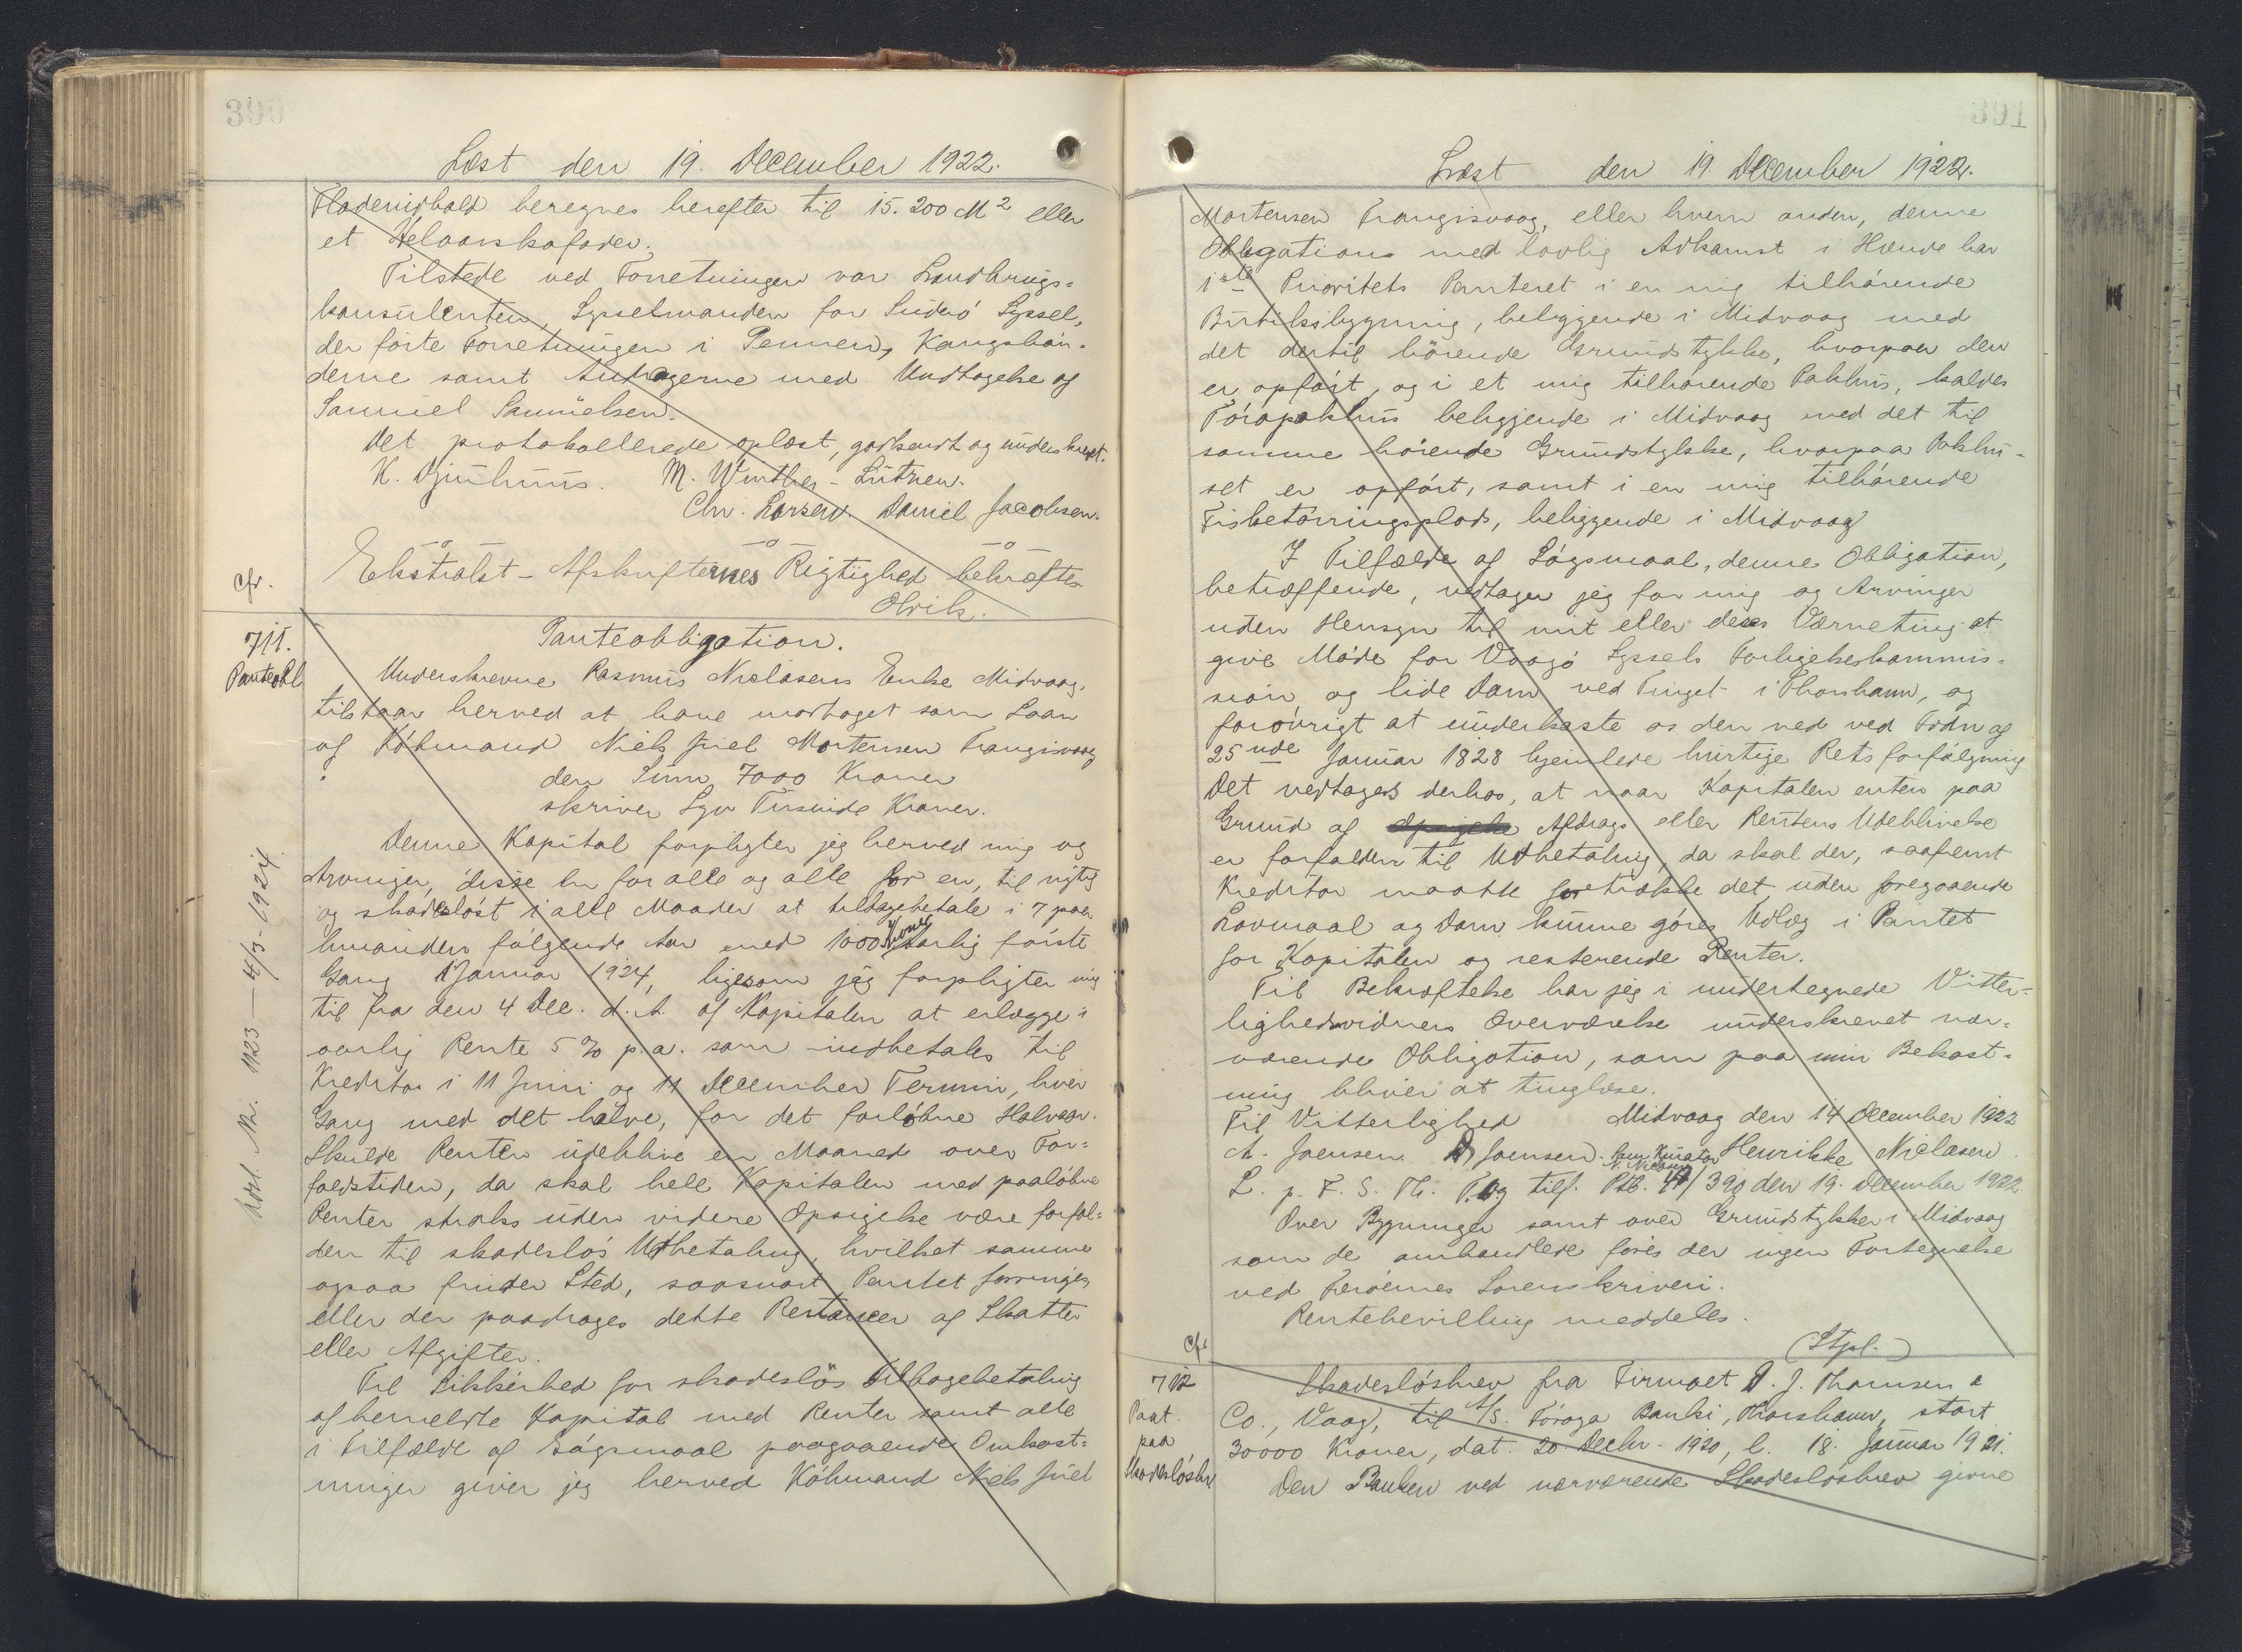 390
Læst den 19. December 1922.
Fladeindhold beregnes herefter til 15.200 M² eller
et Helaarskofoder.
Tilstede ved Forretningen var Landbrugs-
konsulenten, Sysselmanden for Suderó Syssel,
der førte Forretningen i Pennen, Kongsbón-
derne samt Antagerne med Undtagelse af
Samuel Samuelsen.
Det protokollerede oplæst, godkendt og underskrevet.
K. Djurhuus. M. Winther-Lützen.
Chr. Larsen. Daniel Jacobsen.
Ekstrakt-Afskrifternes Rigtighed bekræftes
Cfr.
Olrik.
711.
Panteobl
Panteobligation.
Underskrevne Rasmus Niclasens Enke Midvaag,
tilstaar herved at have modtaget som Laan
af Kóbmand Niels Juel Mortensen Trangisvaag
den Sum 7000 Kroner
skriver Syv Tusinde Kroner.
Denne Kapital forpligter jeg herved mig og
Arvinger, disse en for alle og alle for en, til rigtig
og skadesløst i alle Maader at tilbagebetale i 7 paa
hinanden følgende Aar med 1000 Kroner aarlig første
Gang 1 Januar 1924, ligesom jeg forpligter mig
til fra den 4 Dec. d. A. af Kapitalen at erlægge i
aarlig Rente 5 % p.a. som indbetales til
Kreditor i 11 Juni og 11 December Termin, hver
Gang med det halve, for det forløbne Halvaar.
Skulde Renten udeblive en Maaned over For-
faldstiden, da skal hele Kapitalen med paaløbne
Renter straks uden videre Opsigelse være forfal-
den til skadesløs Udbetaling, hvilket samme
ogsaa finder Sted, saasnart Pantet forringes,
eller der paadrages dette Restancer af Skatter
eller Afgifter.
Til Sikkerhed for skadesløs Tilbagebetaling
af bemeldte Kapital med Renter samt alle
i Tilfælde af Søgsmaal paagaaende Omkost-
ninger giver jeg herved Købmand Niels Juel
Nr. 1123 — 4/3-1924
391
Læst den 19. December 1922.
Mortensen Trangisvaag, eller hvem anden, denne
Obligations med lovlig Adkomst i Hænde har
1ste Prioritets Panteret i en mig tilhørende
Butiksbygning, beliggende i Midvaag med
det dertil hørende Grundstykke, hvorpaa den
er opført, og i et mig tilhørende Pakhus, kaldes
Tórapakhus beliggende i Midvaag med det til
samme hørende Grundstykke, hvorpaa Pakhu-
set er opført, samt i en mig tilhørende
Fisketørringsplads, beliggende i Midvaag
I Tilfælde af Søgsmaal, denne Obligation,
betræffende, vedtager jeg for mig og Arvinger
uden Hensyn til mit eller deres Værneting at
give Møde for Vaagø Syssels Forligelseskommis-
sion, og lide Dom ved Tinget i Thorshavn, og
forøvrigt at underkaste os den ved ved Frdn af
25nde Januar 1828 hjemlede hurtige Retsforfølgning
Det vedtages derhos, at naar Kapitalen enten paa
Grund af Opsigelse Afdrags eller Rentens Udeblivelse
er forfalden til Udbetaling, da skal der, saafremt
Kreditor maatte foretrække det, uden foregaaende
Lovmaal og Dom kunne gøres Udlæg i Pantet
for Kapitalen og resterende Renter.
Til Bekræftelse har jeg i undertegnede Vitter-
lighedsvidners Overværelse underskrevet nær-
værende Obligation, som paa min Bekost-
ning bliver at tinglæse.
Til Vitterlighed Midvaag den 14 December 1922
A. Joensen D Joensen. som Kurator N. Niclasen Henrikke Niclasen
L. p. F. S. Th. T. og tilf. Ptb. 47/390 den 19. December 1922
Over Bygninger samt over Grundstykker i Midvaag
som de omhandlede føres der ingen Fortegnelse
ved Færøernes Sorenskriveri.
Rentebevilling meddeles.
(Stpl.)
Cfr
712
Paat.
paa
Skadesløsbr
Skadesløsbrev fra Firmaet D. J. Thomsen &
Co., Vaag, til A/S. Fóroya Banki, Thorshavn, stort
30000 Kroner, dat. 20 Decbr. 1920, l. 18. Januar 1921.
Den Banken ved nærværende Skadesløsbrev givne